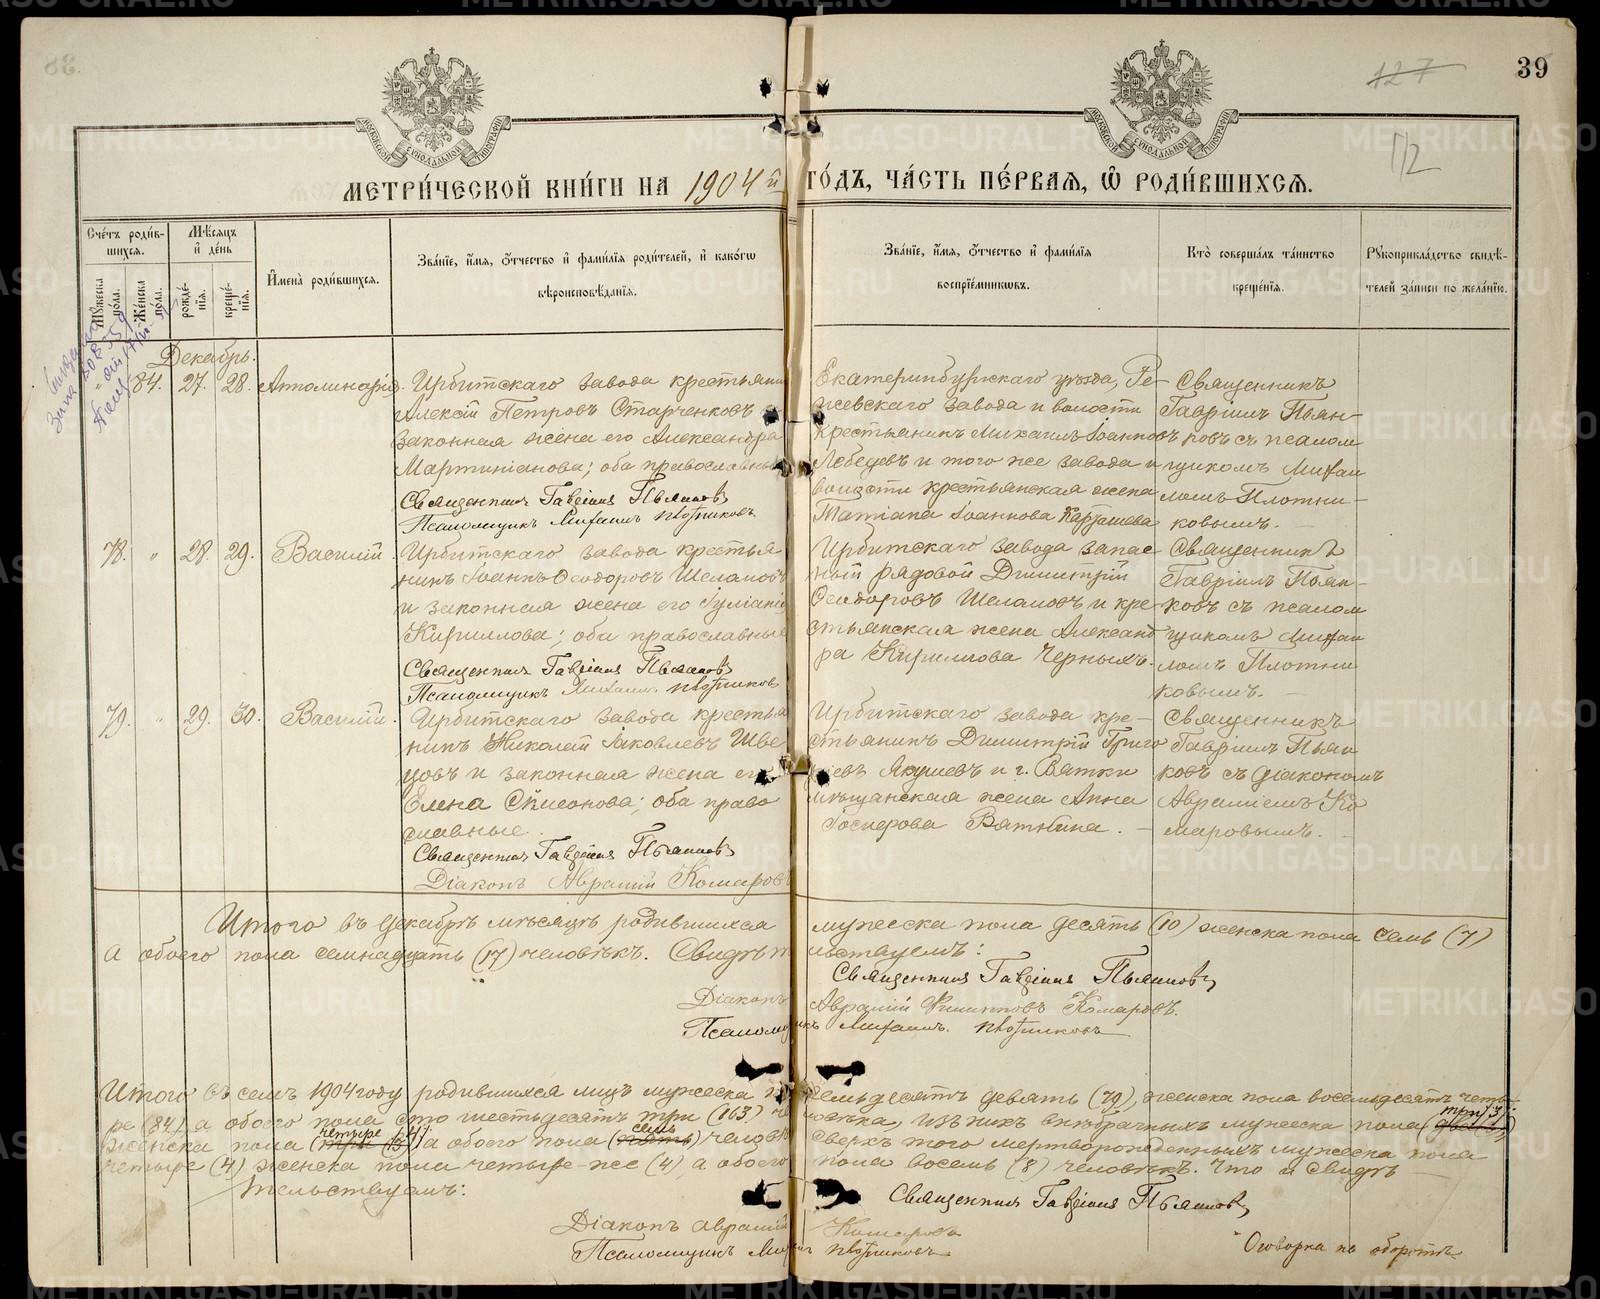 39
127
112
МЕТРИ́ЧЕСКОЙ КНИ́ГИ НА 1904 й ГО́ДЪ, ЧА́СТЬ ПЕ́РВАЯ, Ѡ РОДИ́ВШИХСЯ.
Счетъ родившихся.
Мужеска пола.
Женска пола.
Мѣсяцъ и день
рожденія.
крещенія.
Имена родившихся.
Званіе, имя, отчество и фамилія родителей, и какогѡ
вѣроисповѣданія.
Званіе, имя, отчество и фамилія
воспріемниковъ.
Кто совершалъ таинство
крещенія.
Рукоприкладство свидѣ-
телей записи по желанію.
Декабрь.
84. 27. 28.
Ирбитскаго завода крестьянинъ
Алексій Петровъ Старченковъ и
законная жена его Александра
Мартиніанова; оба православные
Священникъ Гавріилъ Пьянковъ
Псаломщикъ Михаилъ Плотниковъ
Екатеринбургскаго уѣзда, Ре-
жевскаго завода и волости
крестьянинъ Михаилъ Іоанновъ
Лебедевъ и того же завода и
волости крестьянская жена
Татіана Іоаннова
Священникъ
Гавріилъ Пьян-
ковъ съ псалом
щикомъ Михаи
ломъ Плотни-
ковымъ.
78. " 28. 29.
Василій
Ирбитскаго завода крестья
нинъ Іоаннъ Ѳеодоровъ Шеламовъ
и законная жена его Іуліанія
Кириллова; оба православные
Священникъ Гавріилъ Пьянковъ
Псаломщикъ Михаилъ Плотниковъ
Ирбитскаго завода запас-
ный рядовой Димитрій
Ѳеодоровъ Шеламовъ и кре
стьянская жена Александ
ра Кириллова Черныхъ.
Священникъ
Гавріилъ Пьян-
ковъ съ псалом
щикомъ Михаи
ломъ Плотни
ковымъ.
79. " 29. 30.
Василій.
Ирбитскаго завода крестья
нинъ Николай Іаковлевъ Шве
цовъ и законная жена его
Елена; оба право
славные.
Священникъ Гавріилъ Пьянковъ
Діаконъ Аврамій Комаровъ
Ирбитскаго завода кре-
стьянинъ Димитрій Григо
рьевъ Якушевъ и г. Вятки
мѣщанская жена Анна
Вяткина.
Священникъ
Гавріилъ Пьян
ковъ съ діакономъ
Авраміемъ Ко
маровымъ.
Итого въ декабрѣ мѣсяцѣ родившихся мужеска пола десять (10) женска пола семь (7)
а обоего пола семнадцать (17) человѣкъ. Свидѣтельствуемъ:
Священникъ Гавріилъ Пьянковъ
Діаконъ Аврамій Филипповъ Комаровъ.
Псаломщикъ Михаилъ Плотниковъ
Итого въ семъ 1904 году родившихся лицъ мужеска пола семьдесятъ девять (79), женска пола восемьдесятъ четы-
ре (84) а обоего пола сто шестьдесятъ три (163) человѣка, изъ нихъ внѣбрачныхъ мужеска пола три (3)
женска пола четыре (4), а обоего пола (семь) человѣкъ сверхъ того мертворожденныхъ мужеска пола
четыре (4) женска пола четыре-же (4) а обоего пола восемь (8) человѣкъ. Что и свидѣ-
тельствуемъ:
Священникъ Гавріилъ Пьянковъ
Діаконъ Аврамій Комаровъ
Псаломщикъ Михаилъ Плотниковъ
Оговорка на оборотѣ
METRIKI.GASO-URAL.RU